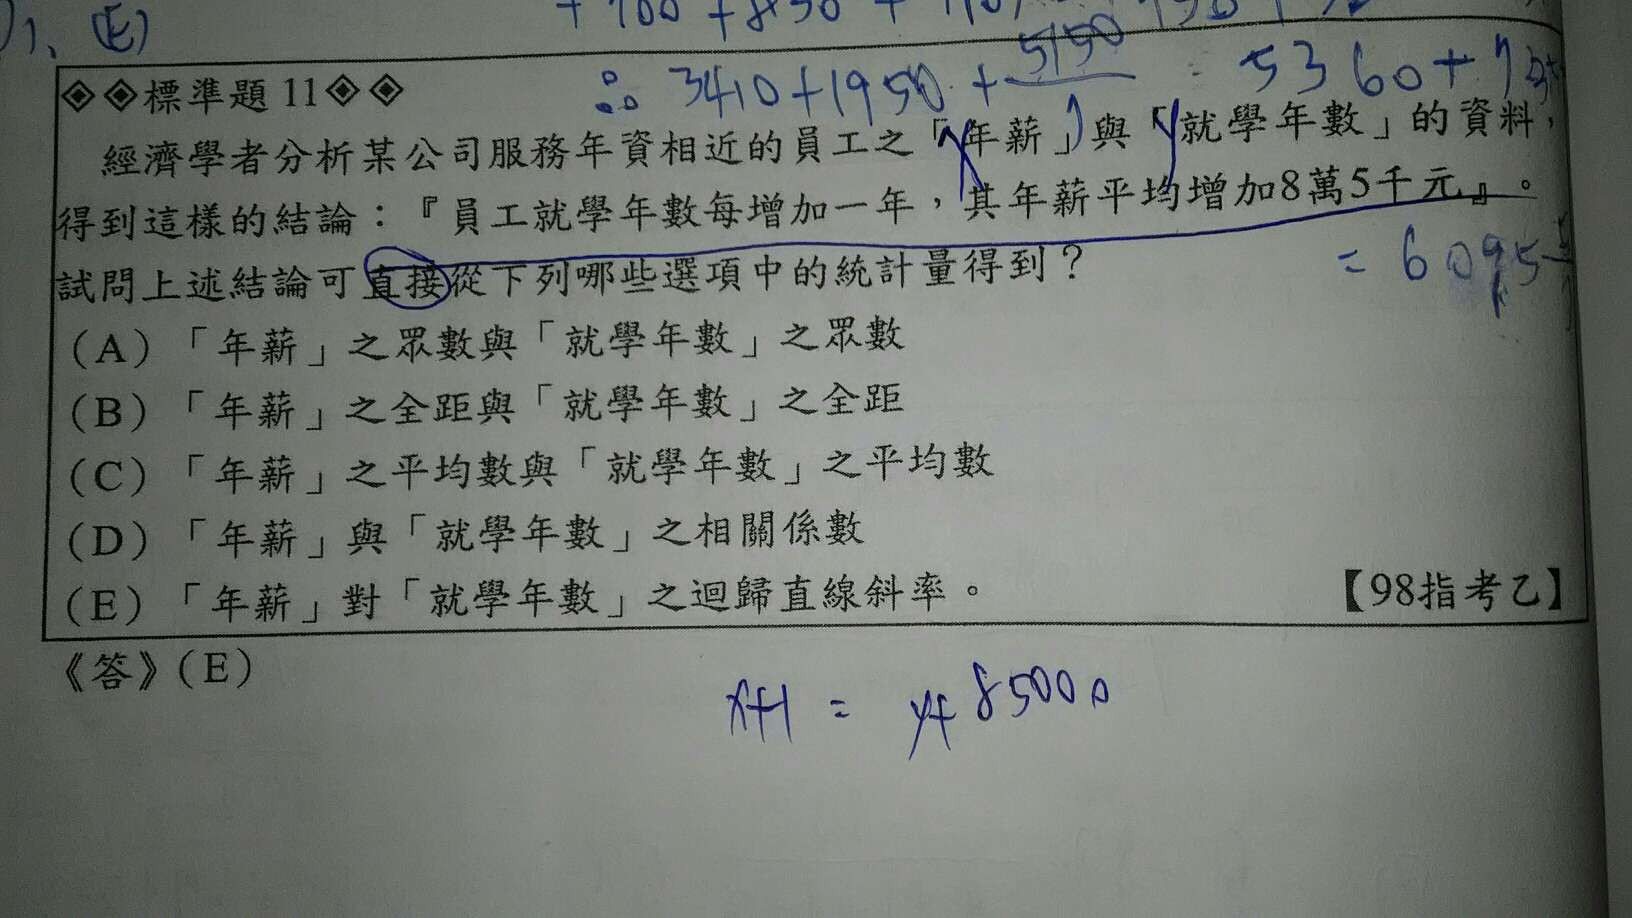 1、(E)
◈◈標準題 11◈◈
∴ 3410+1950+ 5150
5360+
經濟學者分析某公司服務年資相近的員工之「年薪」與「就學年數」的資料，
得到這樣的結論：『員工就學年數每增加一年，其年薪平均增加8萬5千元』。
試問上述結論可直接從下列哪些選項中的統計量得到？
= 6095
(A) 「年薪」之眾數與「就學年數」之眾數
(B) 「年薪」之全距與「就學年數」之全距
(C) 「年薪」之平均數與「就學年數」之平均數
(D) 「年薪」與「就學年數」之相關係數
(E) 「年薪」對「就學年數」之迴歸直線斜率。 【98指考乙】
《答》(E)
x+1 = y+85000